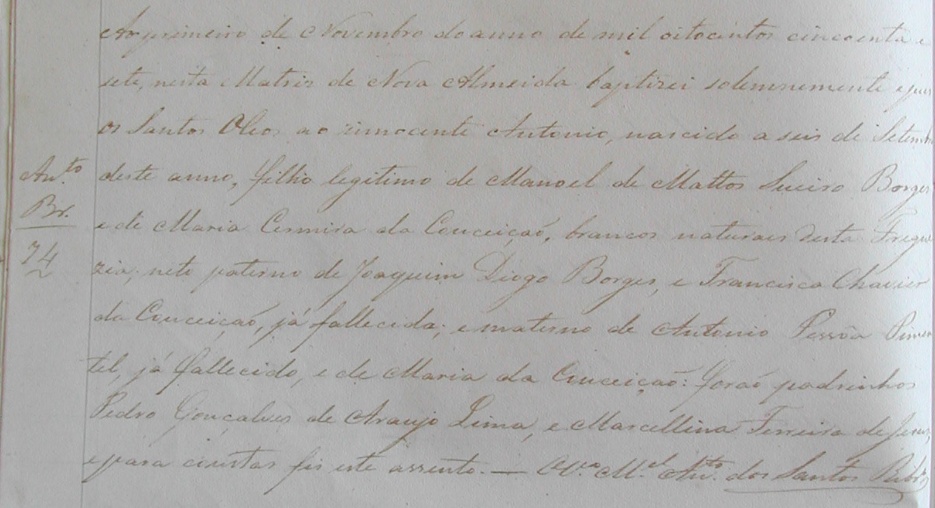 Ao primeiro de Novembro do anno de mil oitocentos cincoenta e
sete, nesta Matris de Nova Almeida baptizei solemnemente e pus
os Santos Oleos ao innocente Antonio, nascido a seis de Setembr
Anto.
deste anno, filho legitimo de Manoel de Mattos Sueiro Borges
Br.
e de Maria da Conceição, brancos naturaes desta Fregue
74
zia; neto paterno de Joaquim Diogo Borges, e Francisca Chavier
da Conceição, já fallecida; e materno de Antonio Pessôa Pimen
tel, já fallecido, e de Maria da Conceição: forão padrinhos
Pedro Gonçalves de Araujo Lima, e Marcellina Ferreira de Jesus,
e para constar fis este assento. — O Vo. Mel. Anto. dos Santos Ribro